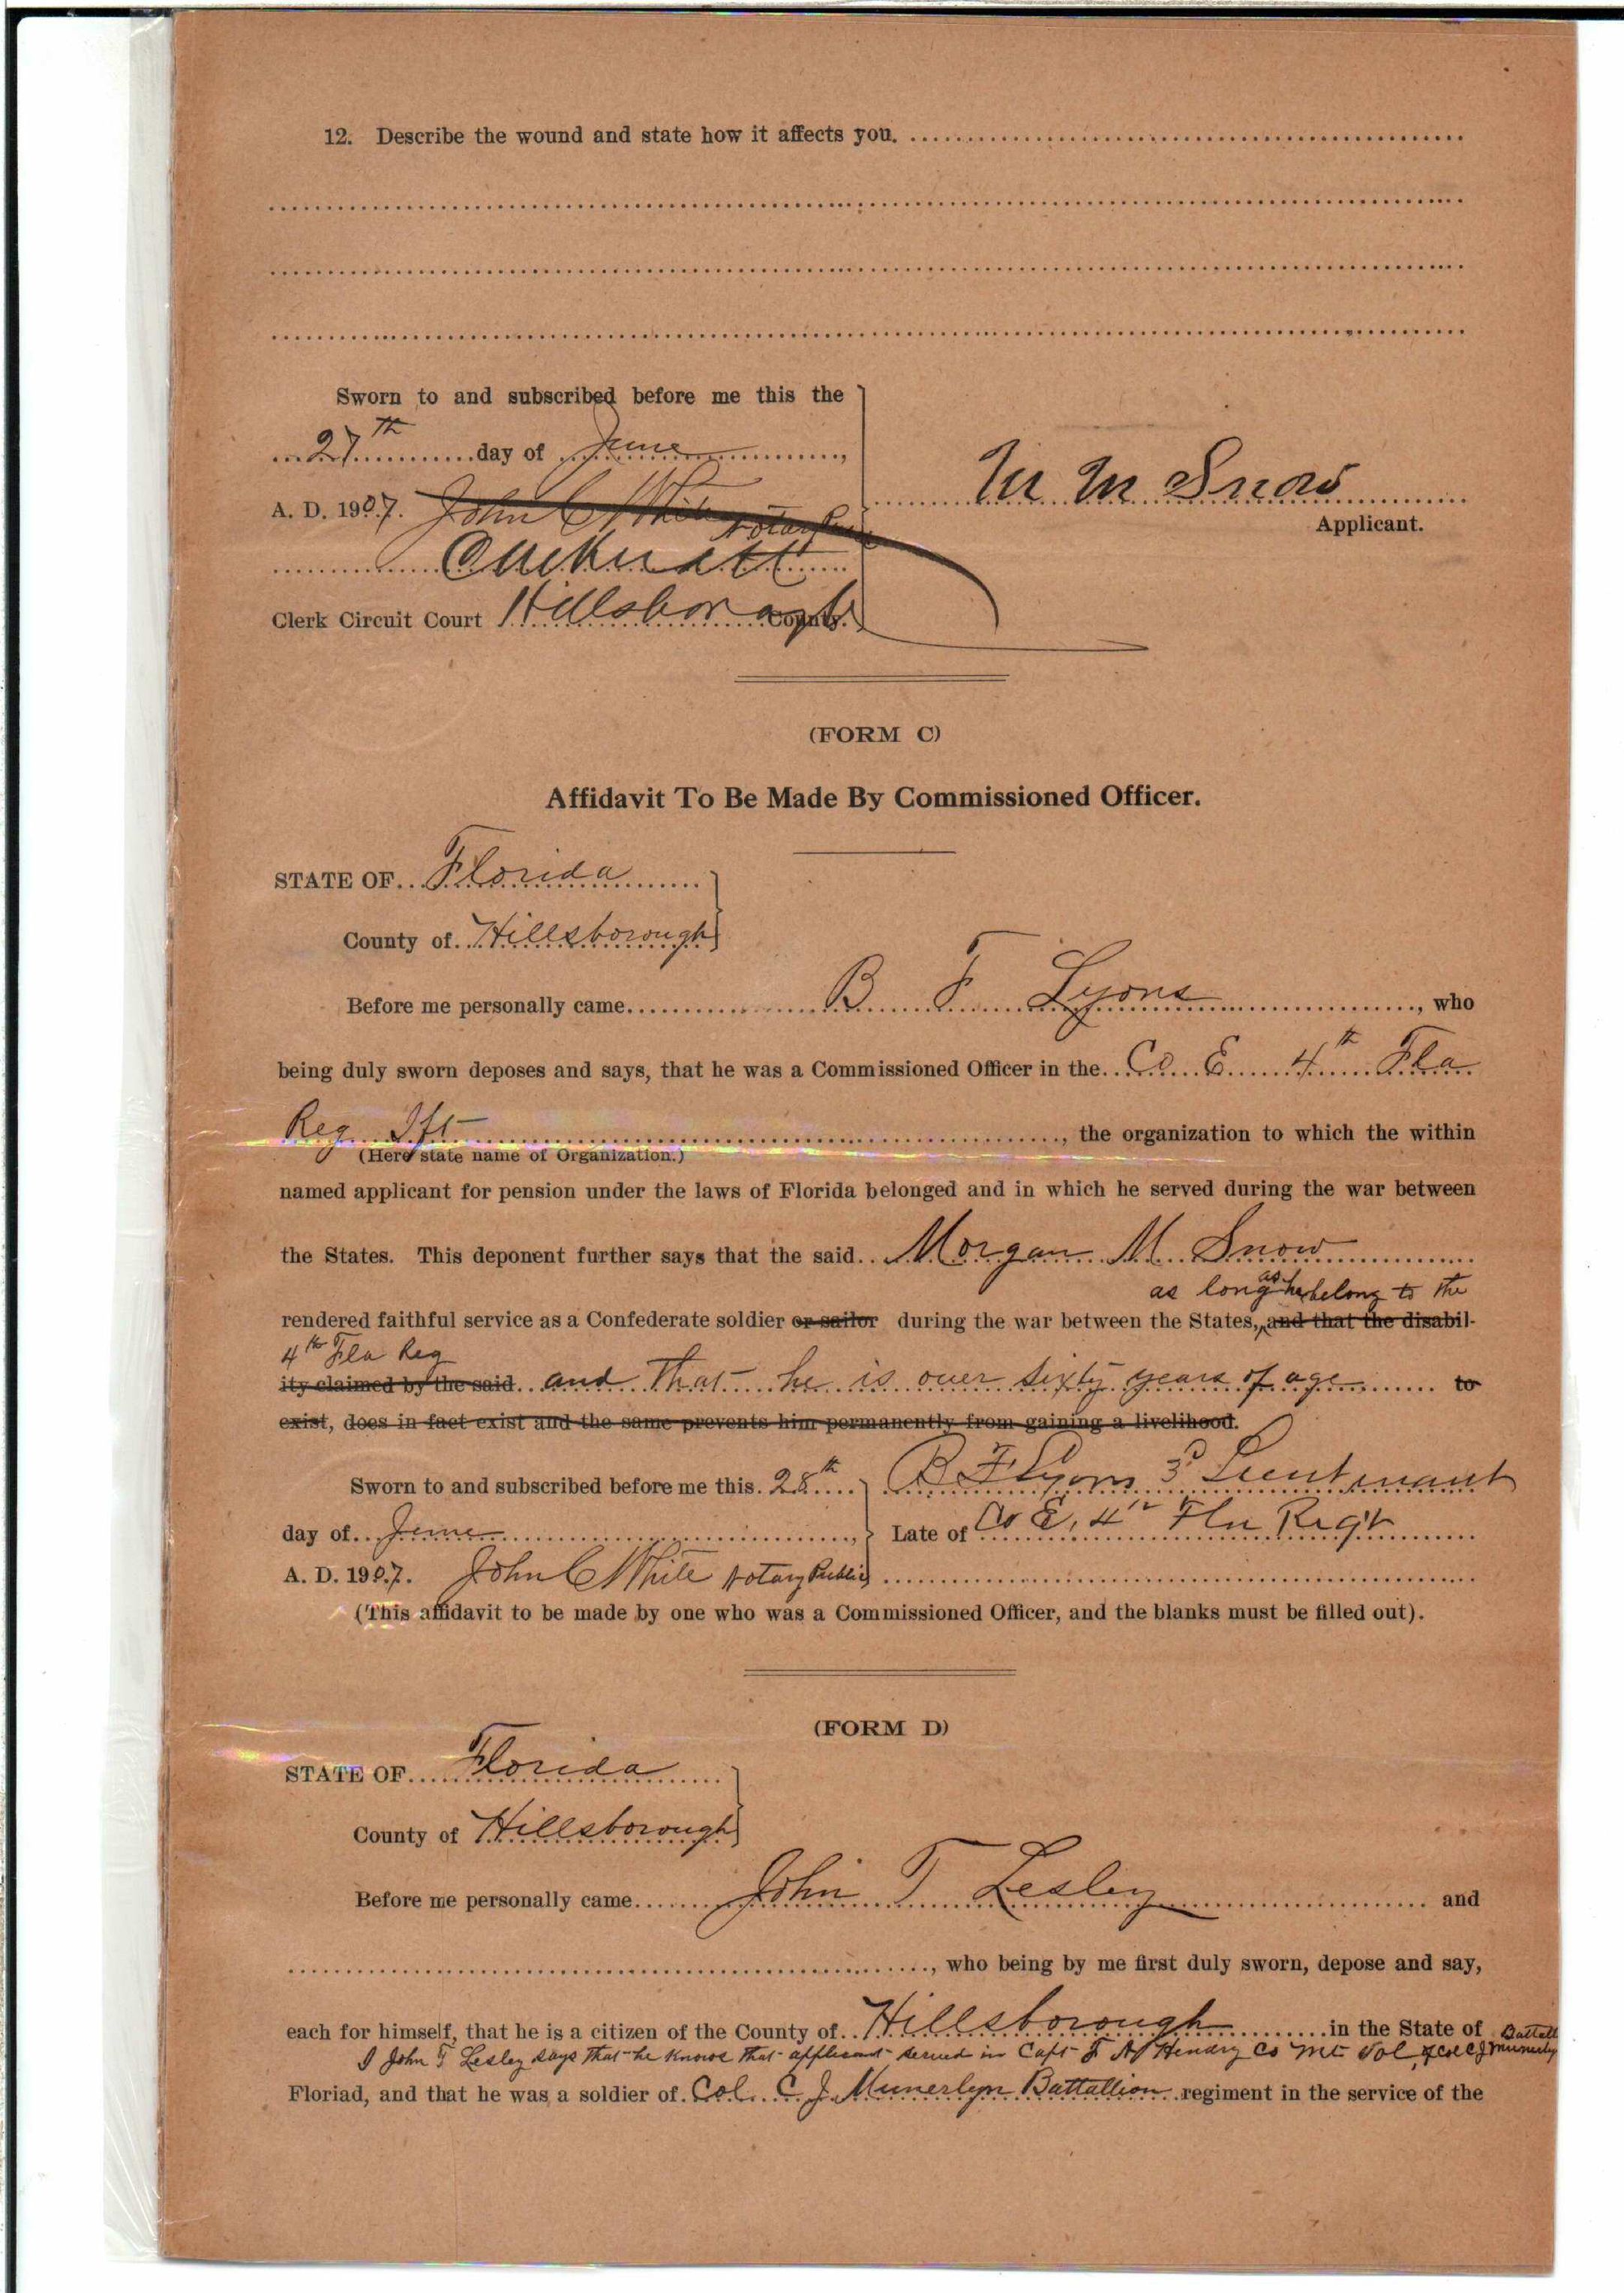 12. Describe the wound and state how it affects you.
Sworn to and subscribed before me this the
27th day of June,
A. D. 1907. John C White Notary Public
M M Snow
Applicant.
Clerk Circuit Court Hillsborough County.
(FORM C)
Affidavit To Be Made By Commissioned Officer.
STATE OF Florida
County of Hillsborough
Before me personally came B F Lyons, who
being duly sworn deposes and says, that he was a Commissioned Officer in the Co E 4th Fla
Reg Ift, the organization to which the within
(Here state name of Organization.)
named applicant for pension under the laws of Florida belonged and in which he served during the war between
the States. This deponent further says that the said Morgan M. Snow
as long as he belong to the
rendered faithful service as a Confederate soldier or sailor during the war between the States, and that the disabil-
4th Fla Reg
ity claimed by the said and that he is over sixty years of age to
exist, does in fact exist and the same prevents him permanently from gaining a livelihood.
Sworn to and subscribed before me this 28th B F Lyons 3d Lieutenant
day of June, Late of Co E, 4th Fla Regt
A. D. 1907. John C White Notary Public
(This affidavit to be made by one who was a Commissioned Officer, and the blanks must be filled out).
(FORM D)
STATE OF Florida
County of Hillsborough
Before me personally came John T Lesley and
, who being by me first duly sworn, depose and say,
each for himself, that he is a citizen of the County of Hillsborough in the State of
I John T Lesley says that he knows that applicant served in Capt F A Hendry Co Mt Vol of Col C J Munerlyn Battall
Floriad, and that he was a soldier of Col. C J Munerlyn Battallion regiment in the service of the